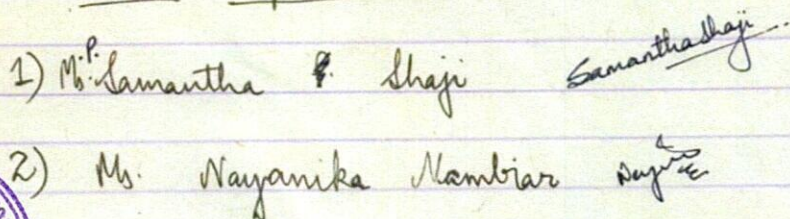 1) Ms. P. Samantha Shaji Samantha Shaji
2) Ms. Nayanika Nambiar